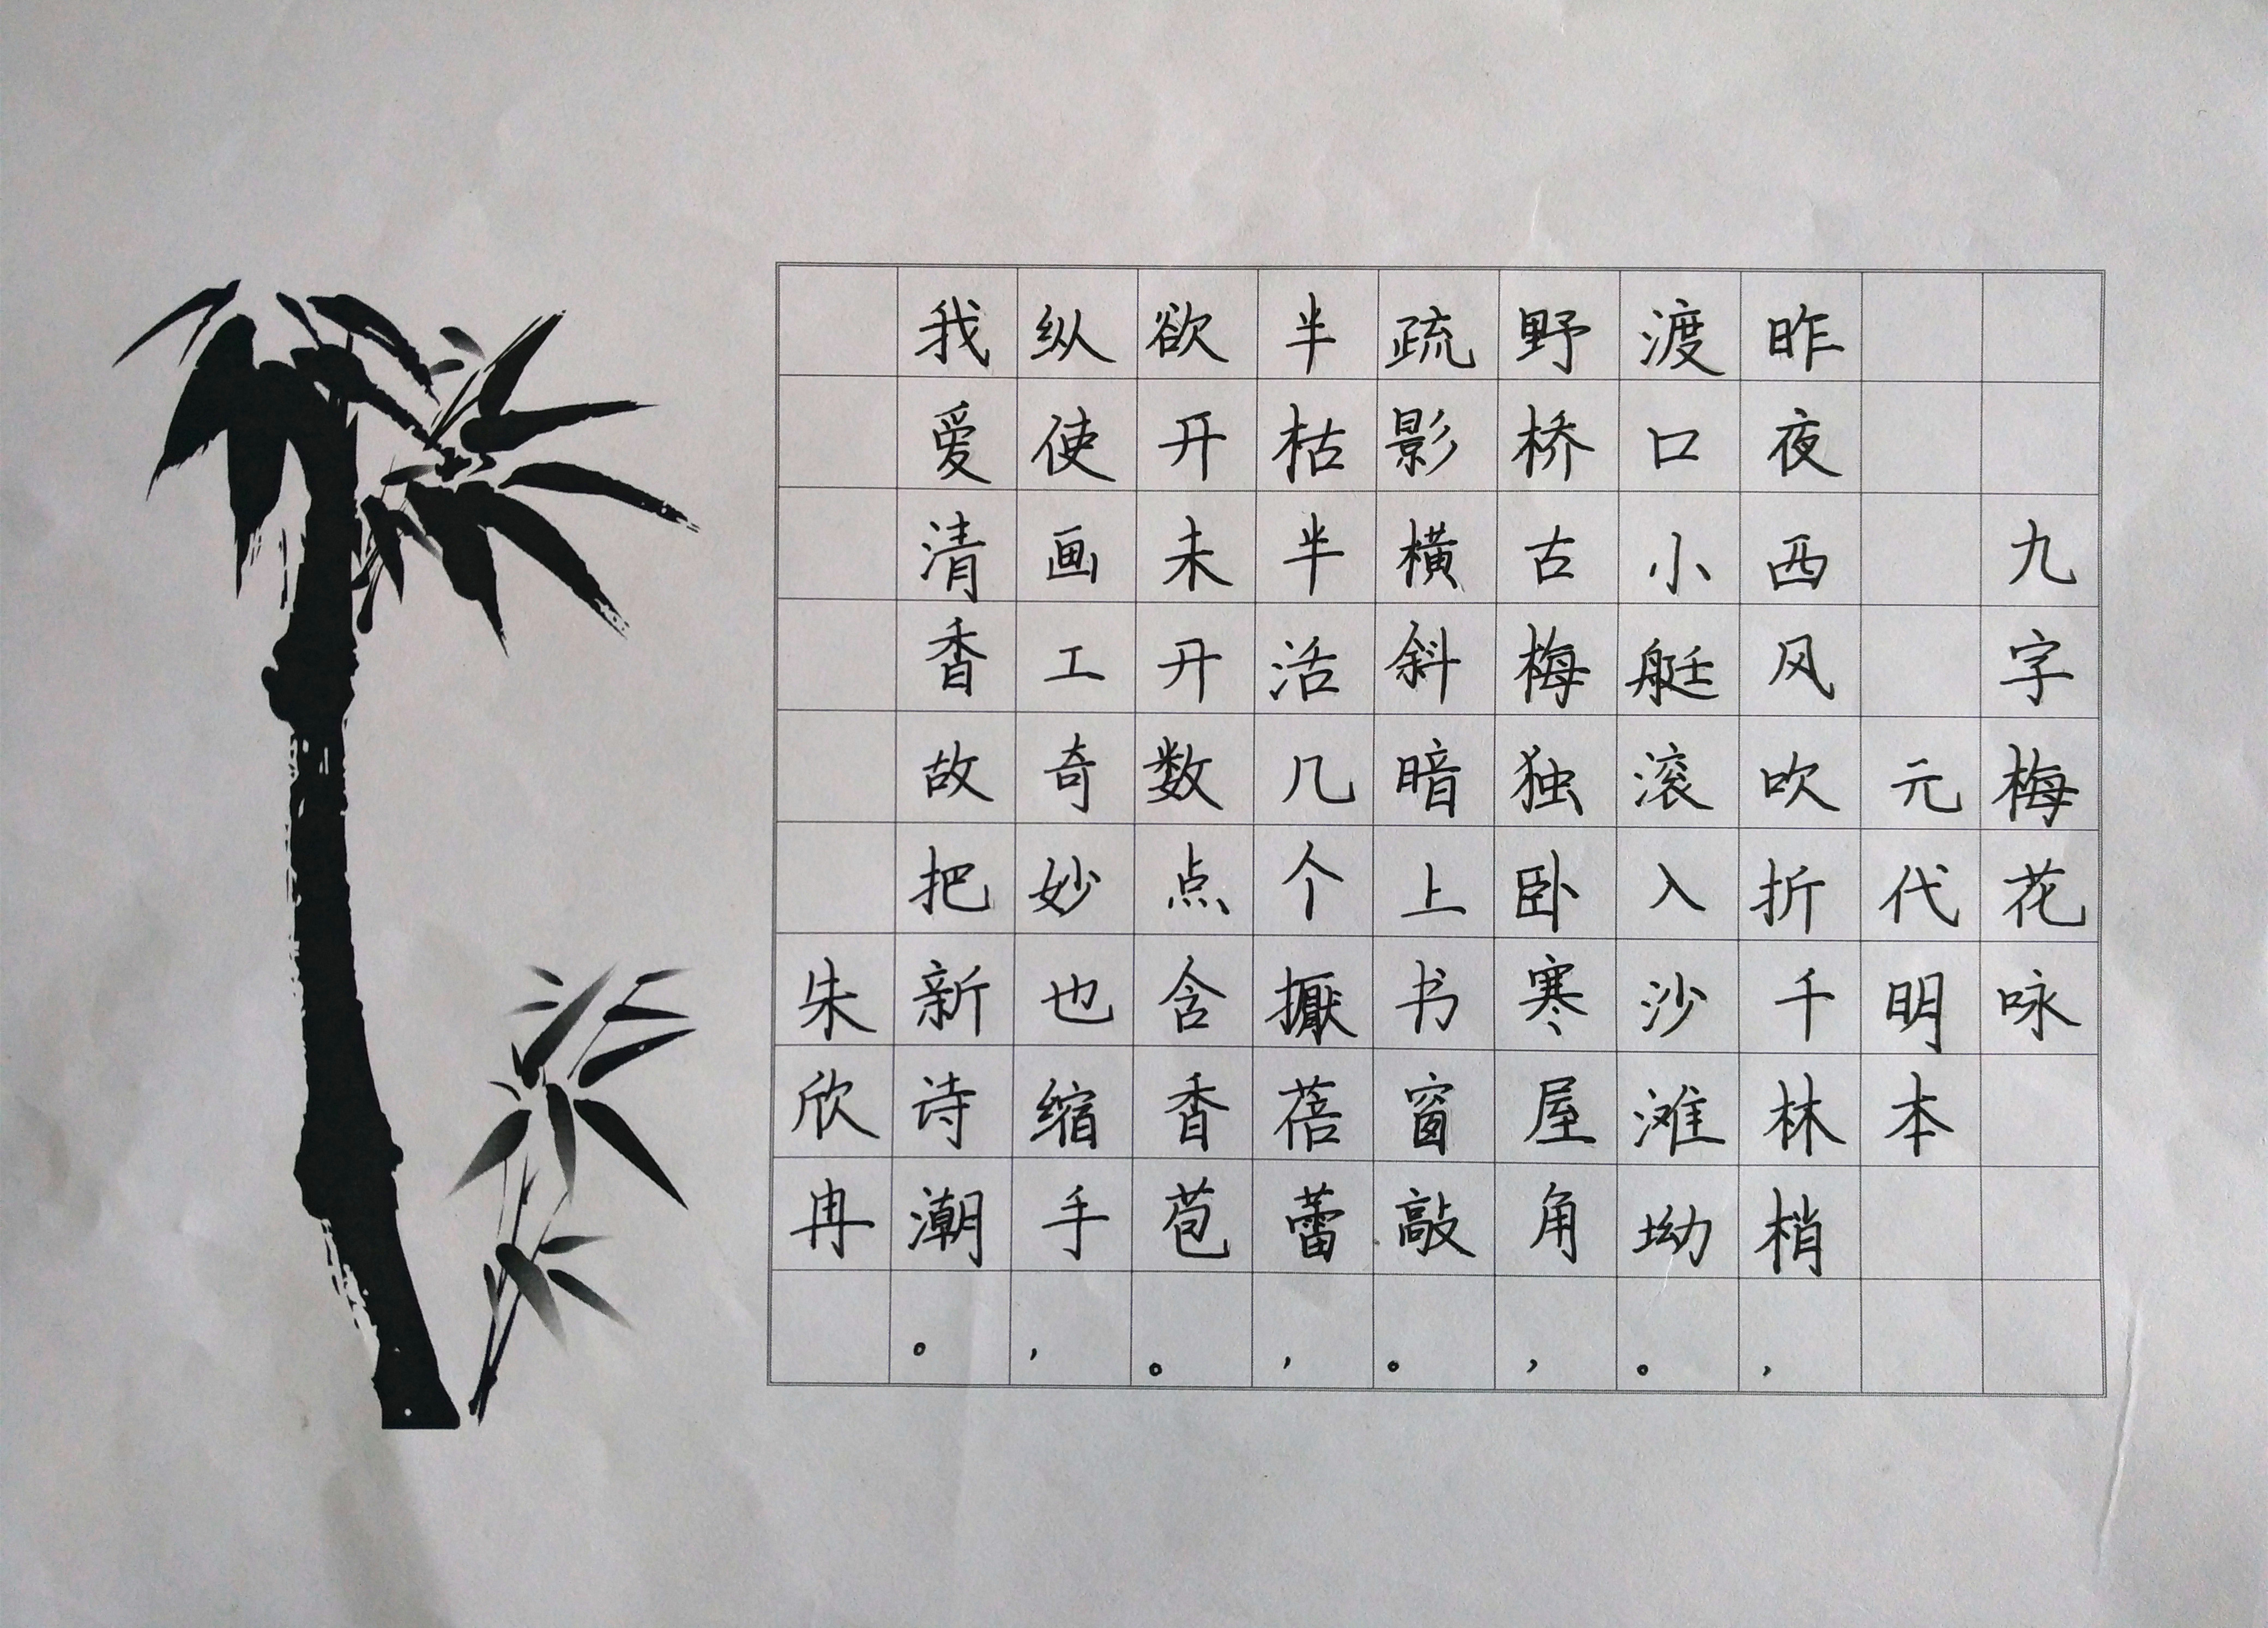 九字梅花咏
元代明本
昨夜西风吹折千林梢，
渡口小艇滚入沙滩坳。
野桥古梅独卧寒屋角，
疏影横斜暗上书窗敲。
半枯半活几个擫蓓蕾，
欲开未开数点含香苞。
纵使画工奇妙也缩手，
我爱清香故把新诗潮。
朱欣冉